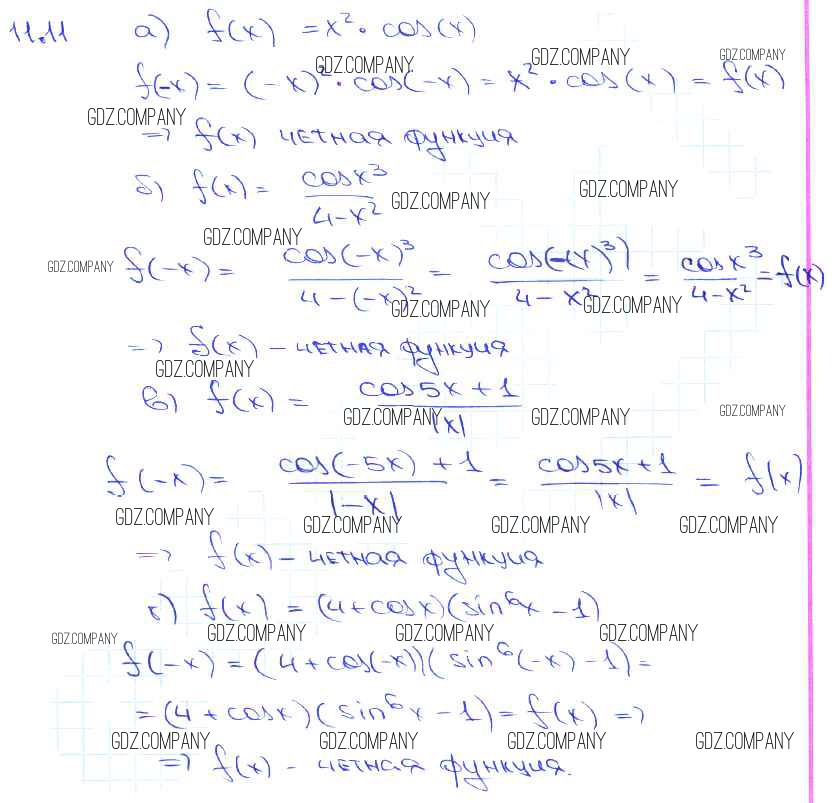 11.11 а) f(x) = x² · cos(x)
GDZ.COMPANY GDZ.COMPANY GDZ.COMPANY
f(-x) = (-x)² · cos(-x) = x² · cos(x) = f(x)
GDZ.COMPANY
=> f(x) четная функция
б) f(x) = cosx³ / 4-x²
GDZ.COMPANY GDZ.COMPANY
GDZ.COMPANY
GDZ.COMPANY f(-x) = cos(-x)³ / 4-(-x)² = cos(-(x)³) / 4-x² = cosx³ / 4-x² = f(x)
GDZ.COMPANY GDZ.COMPANY
=> f(x) - четная функция
GDZ.COMPANY
в) f(x) = cos5x + 1 / |x|
GDZ.COMPANY GDZ.COMPANY GDZ.COMPANY
f(-x) = cos(-5x) + 1 / |-x| = cos5x + 1 / |x| = f(x)
GDZ.COMPANY GDZ.COMPANY GDZ.COMPANY GDZ.COMPANY
=> f(x) - четная функция
г) f(x) = (4+cosx)(sin⁶x - 1)
GDZ.COMPANY GDZ.COMPANY GDZ.COMPANY GDZ.COMPANY
f(-x) = (4+cos(-x))(sin⁶(-x) - 1) =
= (4+cosx)(sin⁶x - 1) = f(x) =>
GDZ.COMPANY GDZ.COMPANY GDZ.COMPANY GDZ.COMPANY
=> f(x) - четная функция.